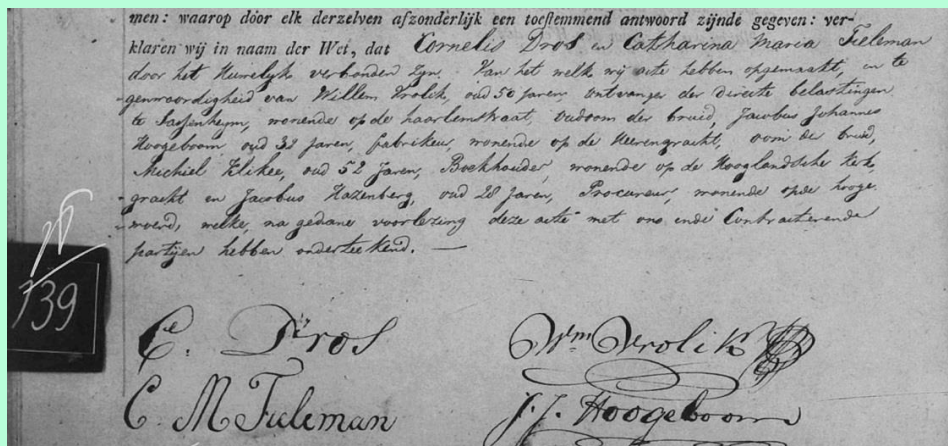 men: waarop door elk derzelven afzonderlijk een toestemmend antwoord zijnde gegeven: ver-
klaren wij in naam der Wet, dat Cornelis Dros en Catharina Maria Tieleman
door het Huwelyk verbonden zyn. Van het welk wij acte hebben opgemaakt, en te
genwoordigheid van Willem Vrolik, oud 50 jaren, ontvanger der directe belastingen
te Sassenheym, wonende op de haarlemstraat, oudoom der bruid, Jacobus Johannes
Hoogeboom oud 32 jaren, fabrikeur, wonende op de Heerengracht, oom der bruid,
Michiel Flikee, oud 52 Jaren, Boekhouder, wonende op de Hooglandsche kerk
gracht en Jacobus Hazenberg, oud 28 Jaren, Procureur, wonende op de hooge
woerd, welke, na gedane voorlezing deze acte met ons en de Contracterende
partijen hebben onderteekend. —
139
C. Dros
Wm Vrolik
C. M Tieleman
J. J. Hoogeboom